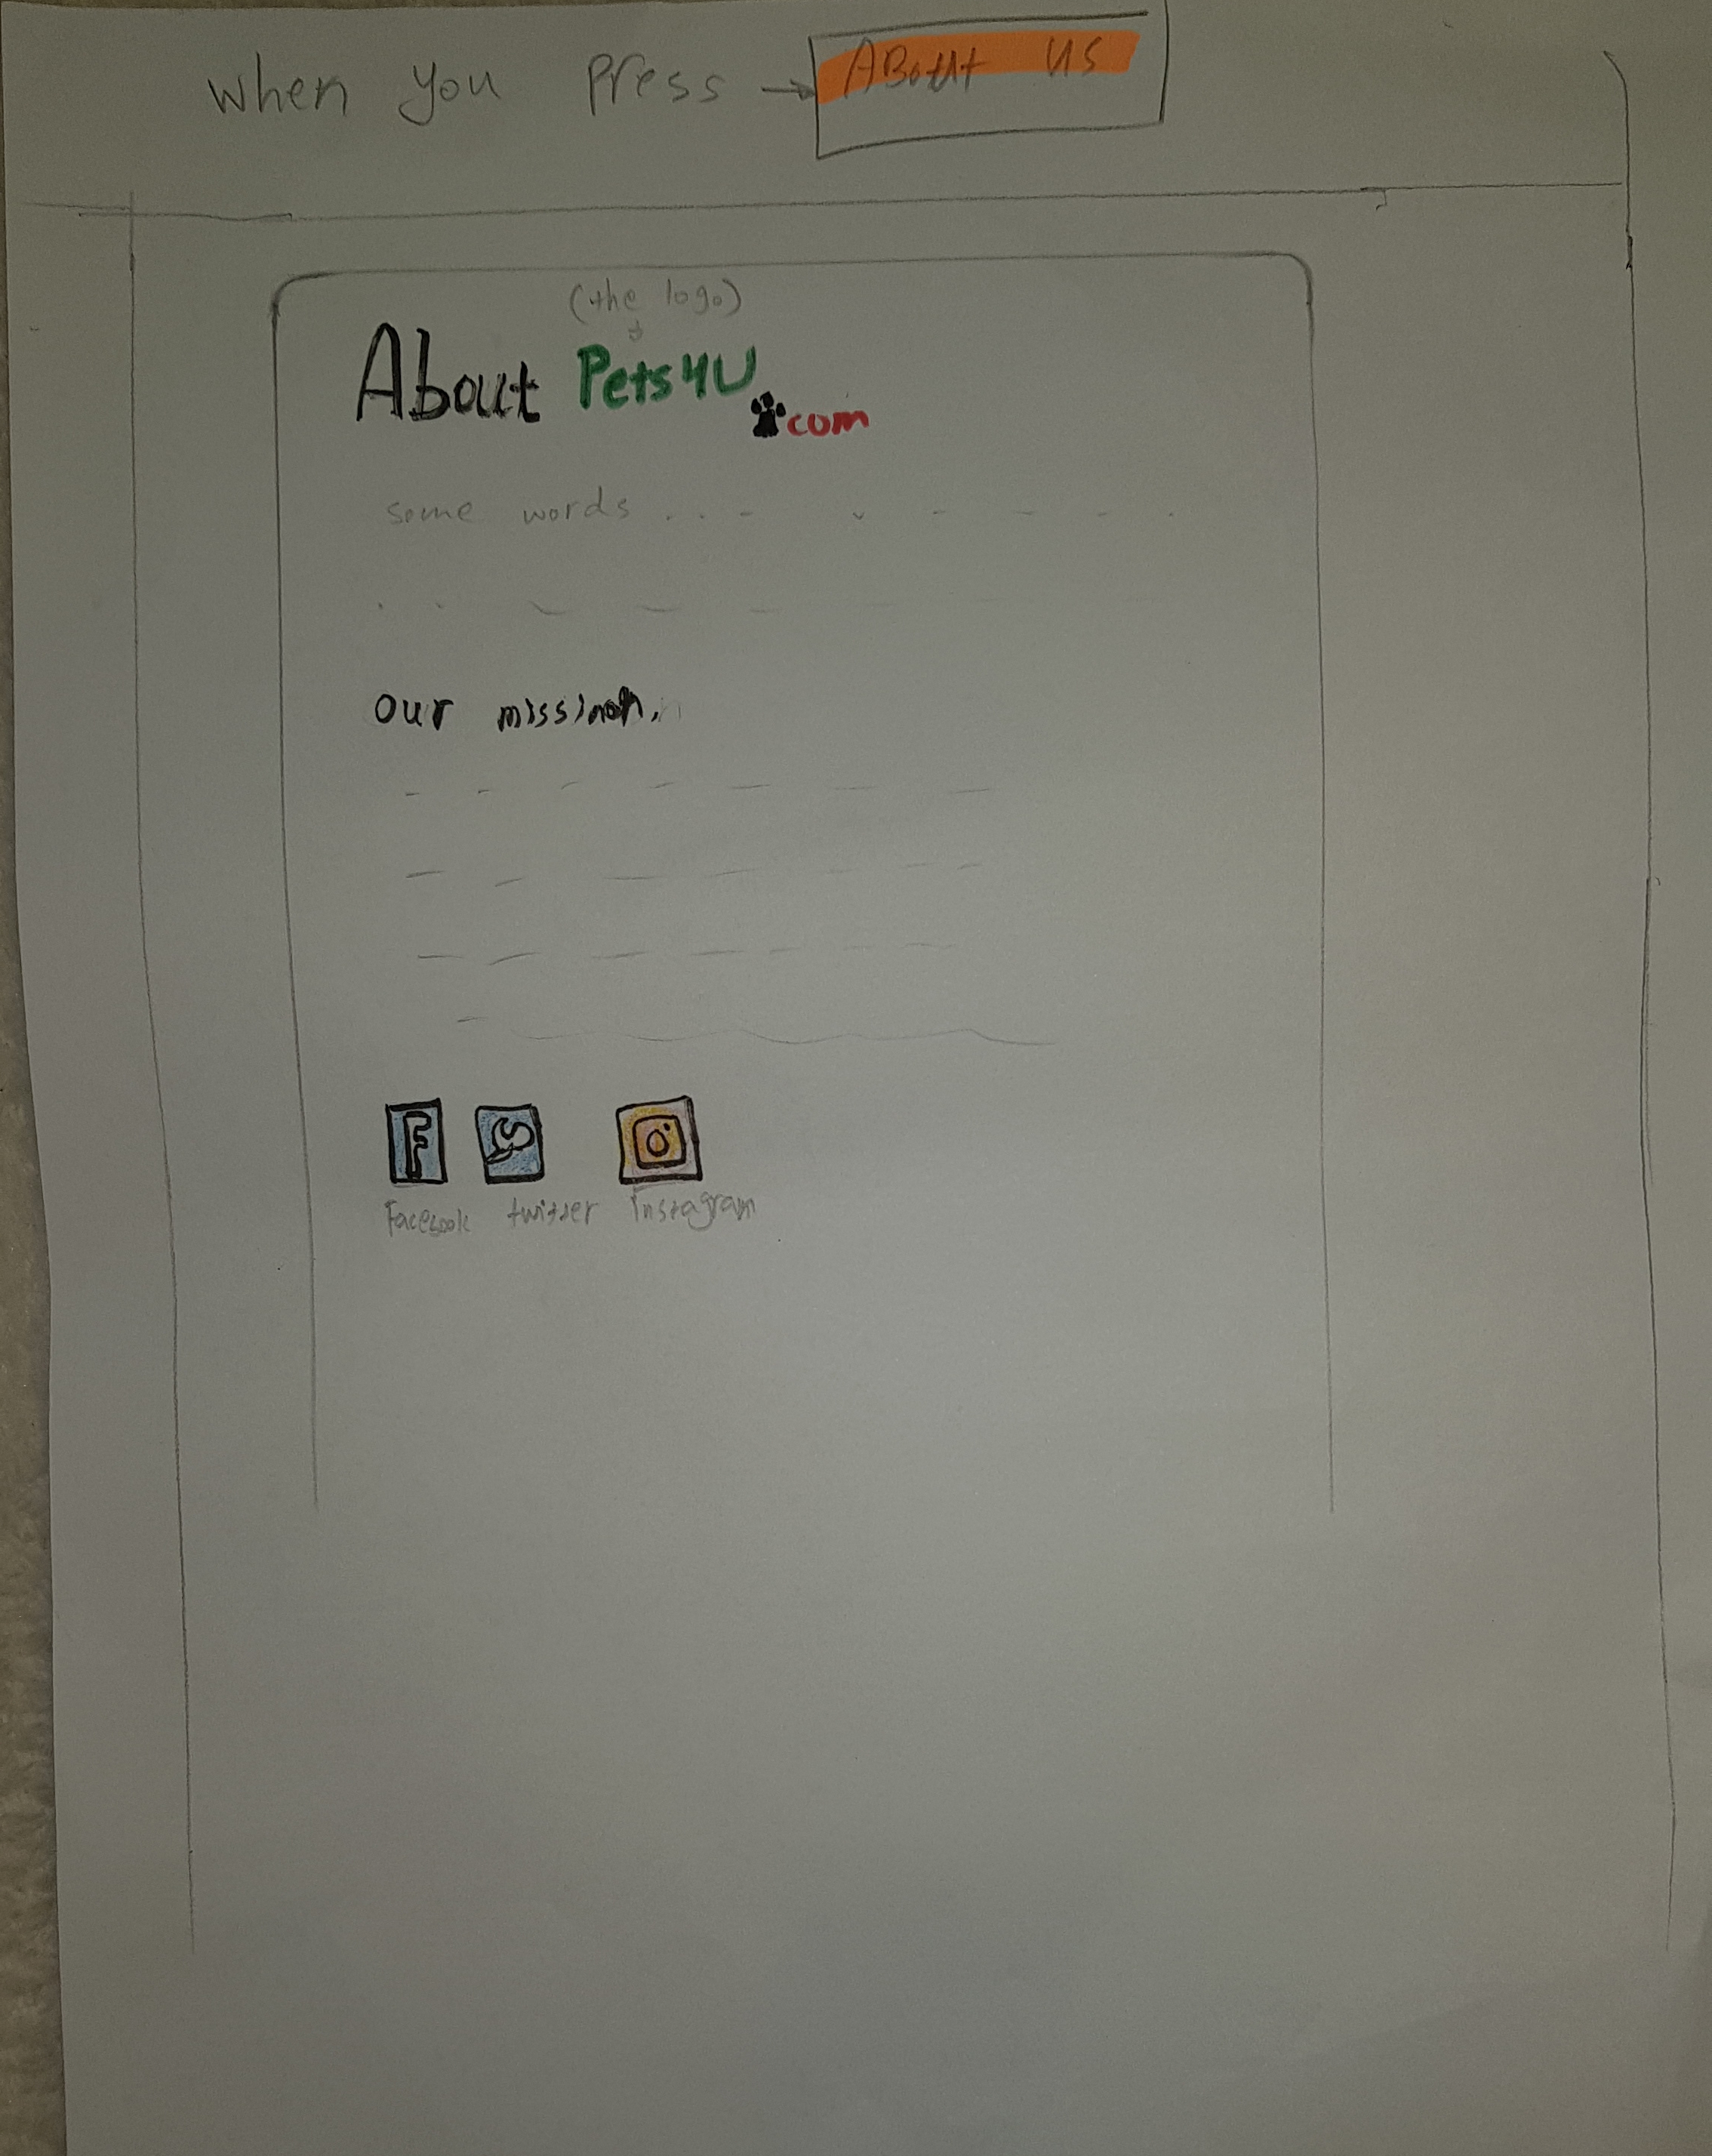 when you press → About us
(the logo)
About Pets4U
com
some words . . -
our mission.
F
Facebook twitter instagram